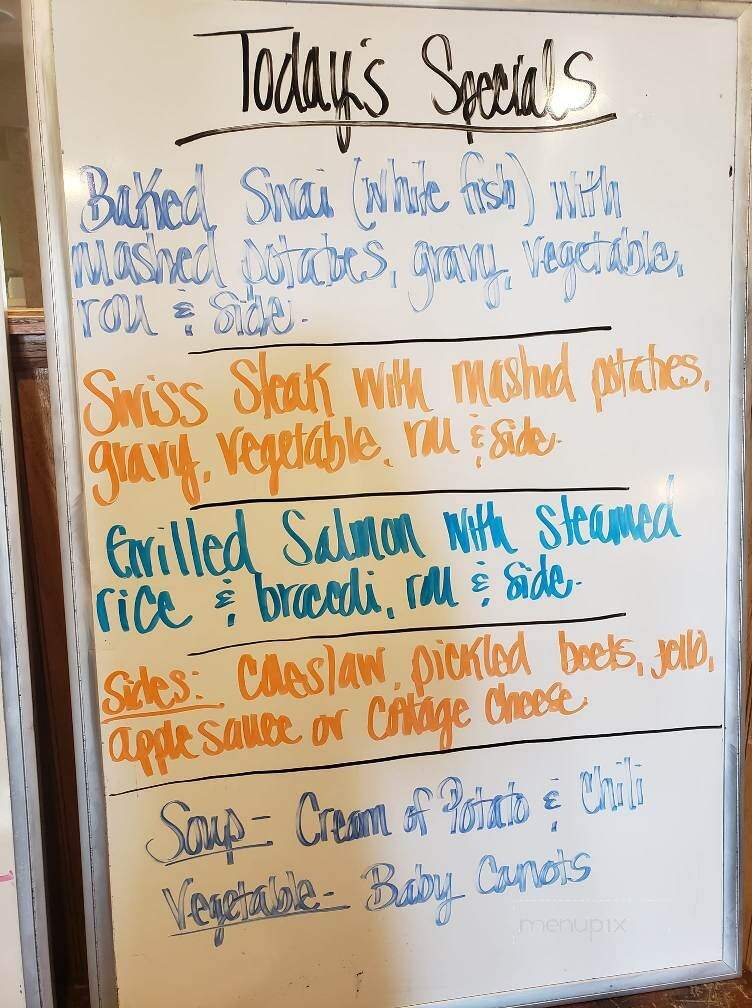 Today's Specials
Baked Swai (white fish) with
mashed potatoes, gravy, vegetable,
roll & side.
Swiss Steak with mashed potatoes,
gravy, vegetable, roll & side.
Grilled Salmon with steamed
rice & broccoli, roll & side.
Sides: Coleslaw, pickled beets, jello,
applesauce or Cottage Cheese
Soup- Cream of Potato & Chili
Vegetable- Baby Carrots
menupix